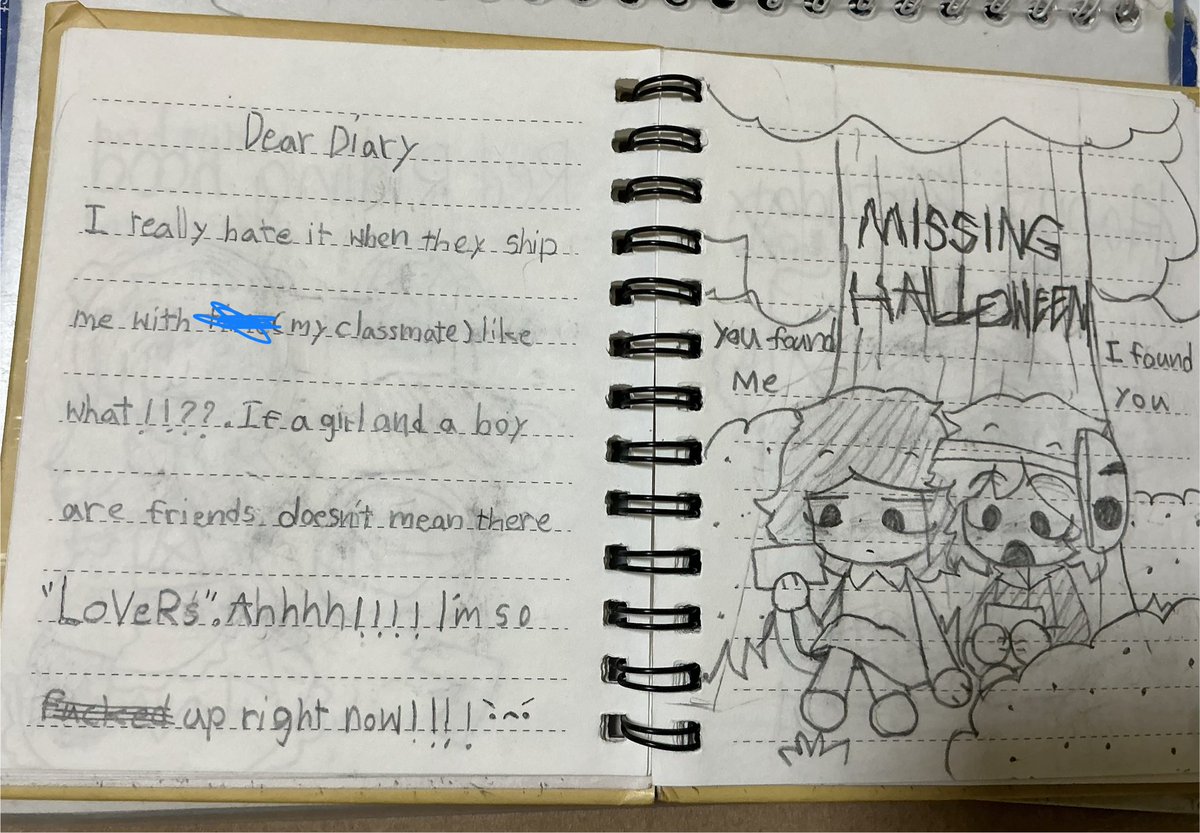 Dear Diary
I really hate it when they ship
me with (my classmate) like
what!!??. If a girl and a boy
are friends doesn't mean there
"LoVeRs". Ahhhh!!!! I'm so
fucked up right now!!!!
MISSING
HALLOWEEN
You found
Me
I found
You